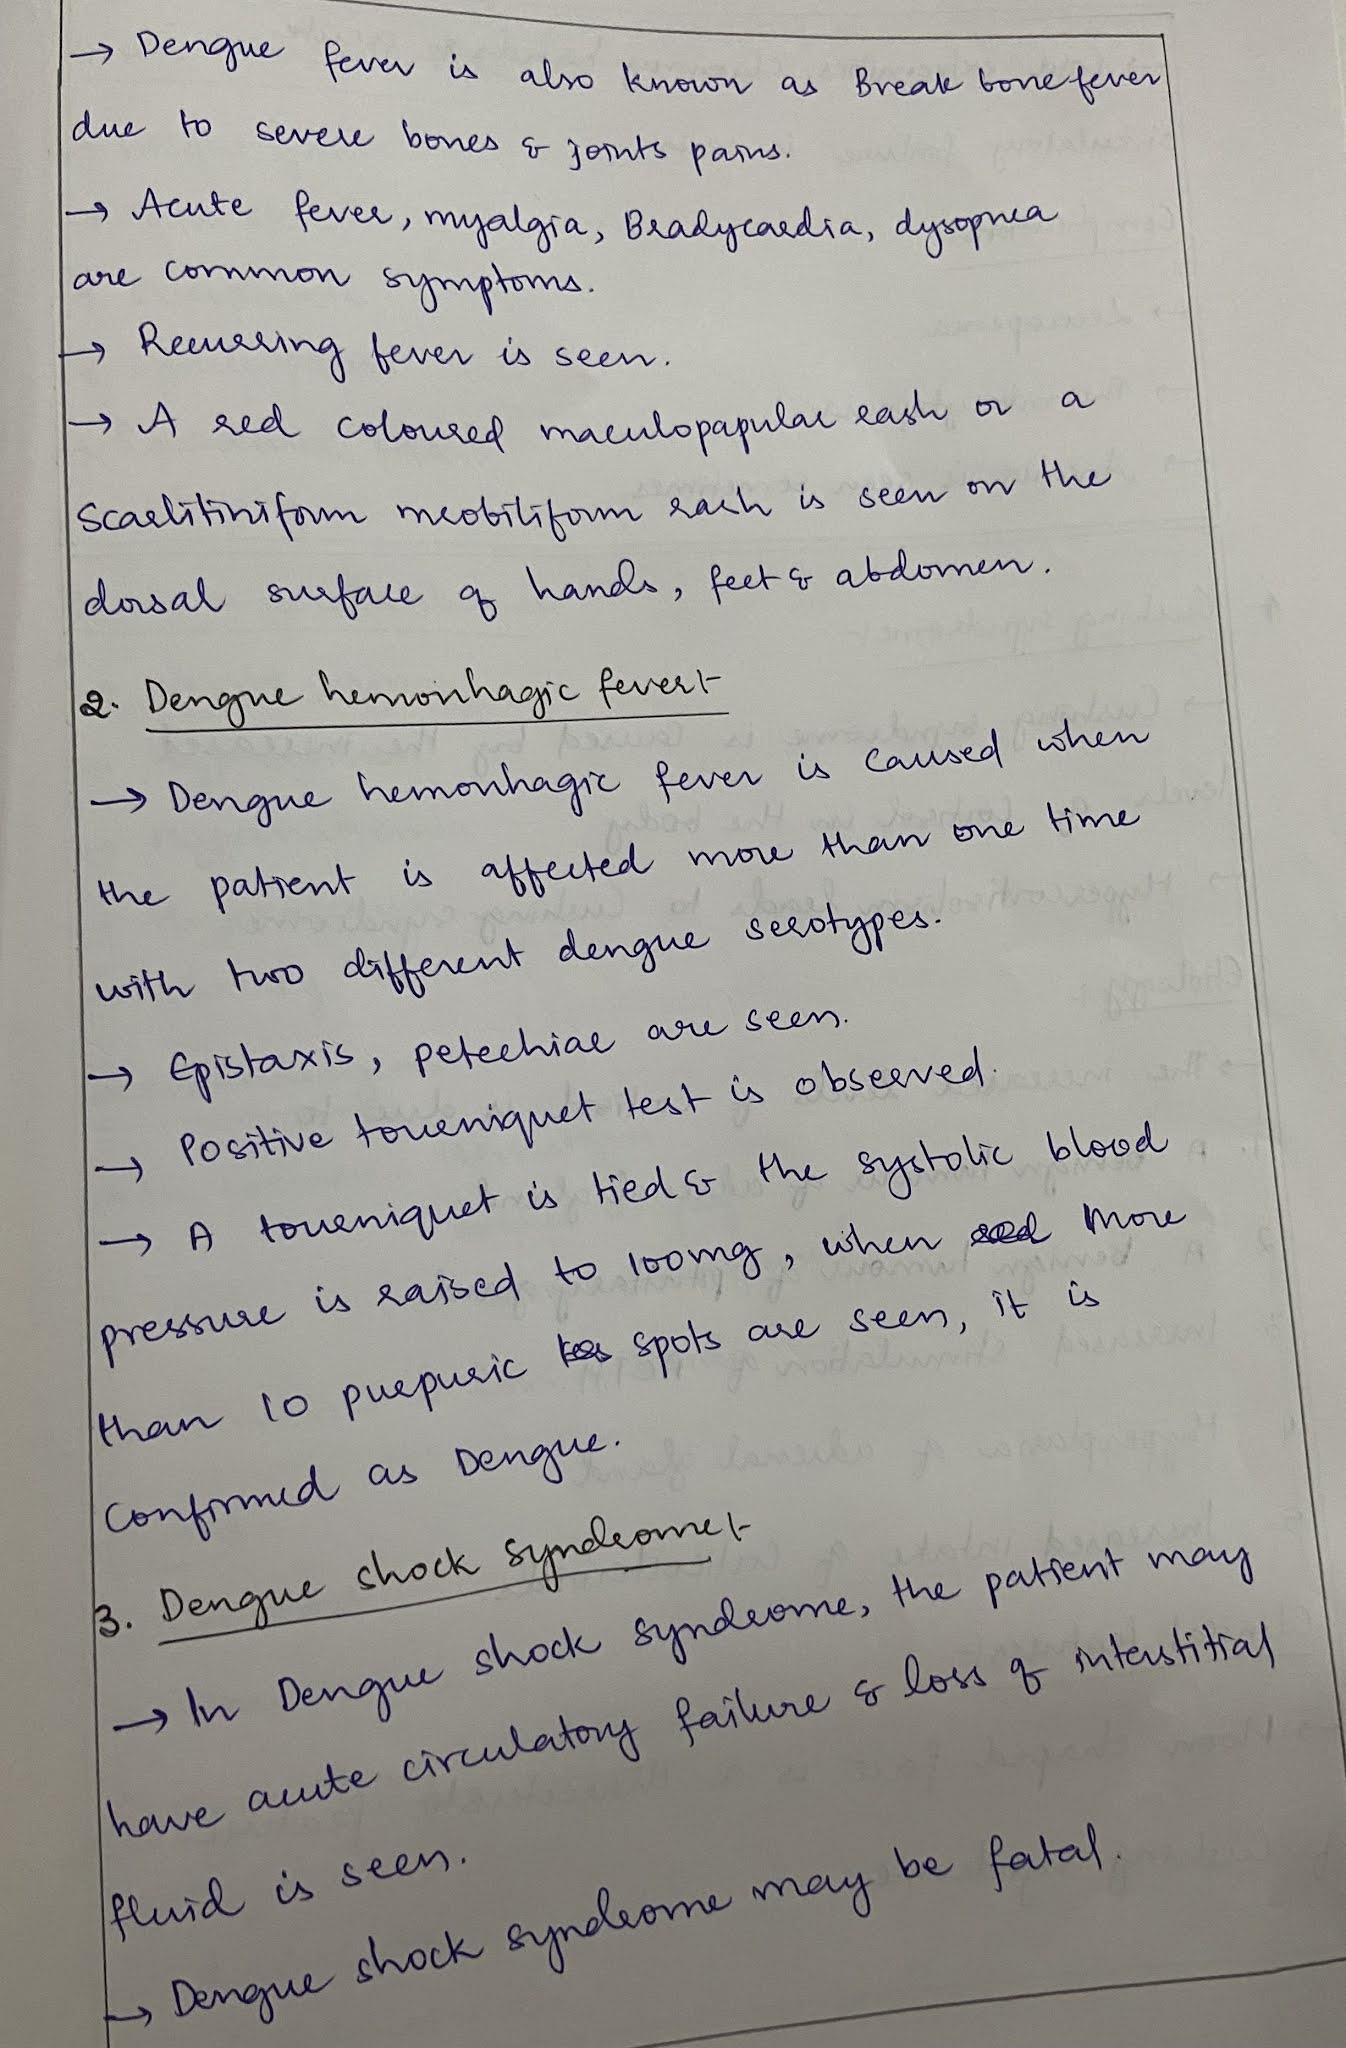 → Dengue fever is also known as Break bone fever
due to severe bones & joints pains.
→ Acute fever, myalgia, Bradycardia, dysopnea
are common symptoms.
→ Recurring fever is seen.
→ A red coloured maculopapular rash or a
Scarlitiniform mrobiliform rash is seen on the
dorsal surface of hands, feet & abdomen.
2. Dengue hemorrhagic fever:-
→ Dengue hemorrhagic fever is caused when
the patient is affected more than one time
with two different dengue serotypes.
→ Epistaxis, petechiae are seen.
→ Positive tourniquet test is observed.
→ A tourniquet is tied & the systolic blood
pressure is raised to 100mg, when more
than 10 purpuric spots are seen, it is
confirmed as Dengue.
3. Dengue shock syndrome:-
→ In Dengue shock syndrome, the patient may
have acute circulatory failure & loss of interstitial
fluid is seen.
→ Dengue shock syndrome may be fatal.